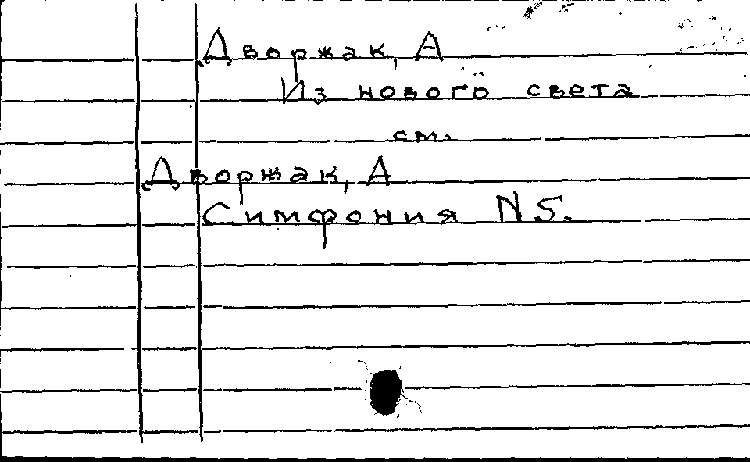 Дворжак, А
Из нового света
см.
Дворжак, А
Симфония N 5.